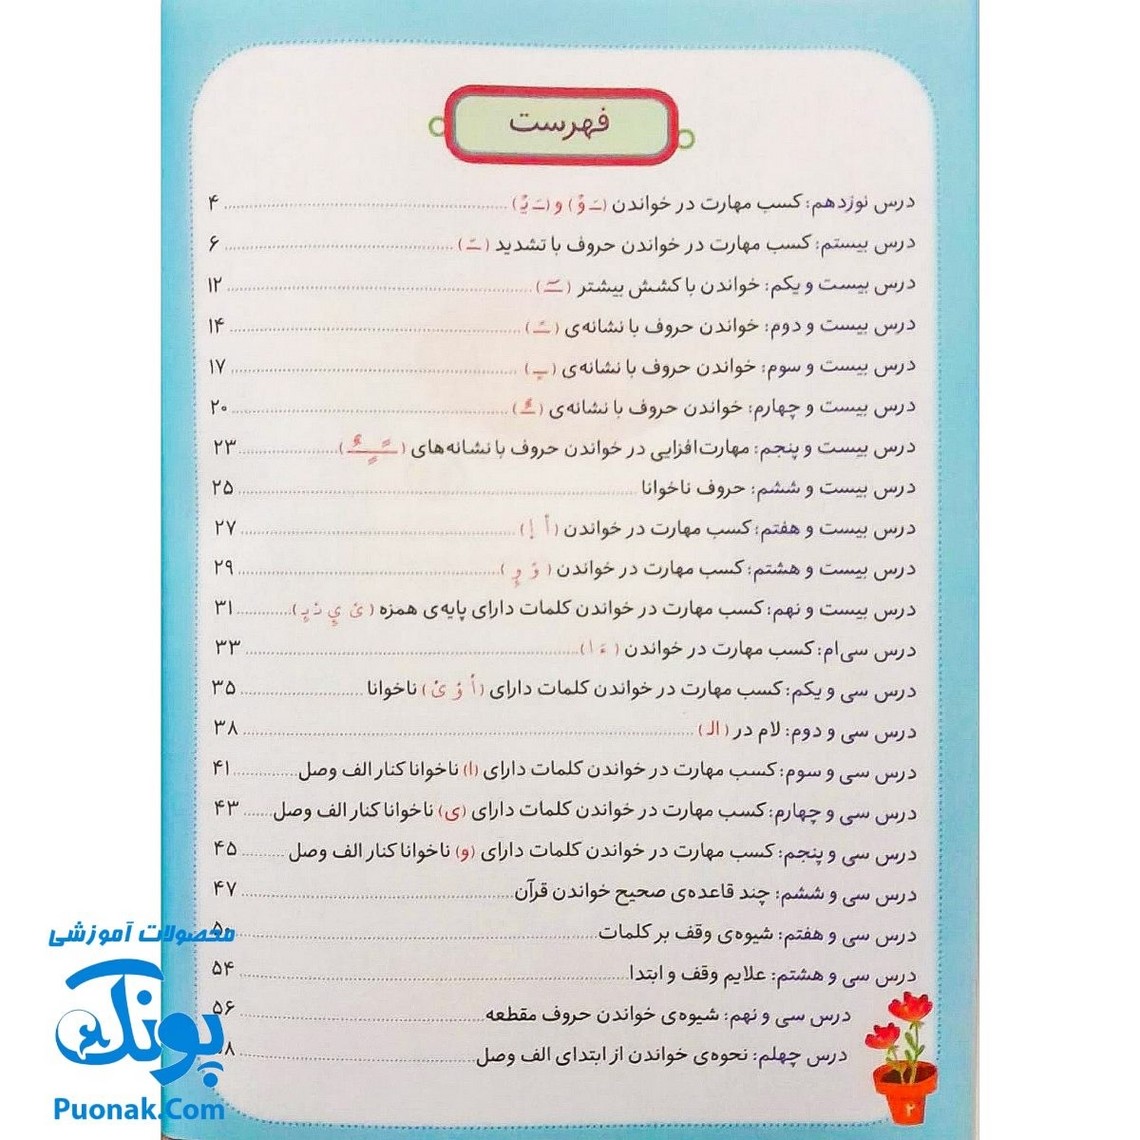 فهرست
درس نوزدهم: کسب مهارت در خواندن (ـَ وْ) و (ـَ یْ) ۴
درس بیستم: کسب مهارت در خواندن حروف با تشدید (ـّ) ۶
درس بیست و یکم: خواندن با کشش بیشتر (ـٓ) ۱۲
درس بیست و دوم: خواندن حروف با نشانه‌ی (ـً) ۱۴
درس بیست و سوم: خواندن حروف با نشانه‌ی (ـٍ) ۱۷
درس بیست و چهارم: خواندن حروف با نشانه‌ی (ـٌ) ۲۰
درس بیست و پنجم: مهارت‌افزایی در خواندن حروف با نشانه‌های (ـًـٍـٌ) ۲۳
درس بیست و ششم: حروف ناخوانا ۲۵
درس بیست و هفتم: کسب مهارت در خواندن (أ إ) ۲۷
درس بیست و هشتم: کسب مهارت در خواندن ۲۹
درس بیست و نهم: کسب مهارت در خواندن کلمات دارای پایه‌ی همزه ۳۱
درس سی‌ام: کسب مهارت در خواندن ۳۳
درس سی و یکم: کسب مهارت در خواندن کلمات دارای ناخوانا ۳۵
درس سی و دوم: لام در (الـ) ۳۸
درس سی و سوم: کسب مهارت در خواندن کلمات دارای (ا) ناخوانا کنار الف وصل ۴۱
درس سی و چهارم: کسب مهارت در خواندن کلمات دارای (ی) ناخوانا کنار الف وصل ۴۳
درس سی و پنجم: کسب مهارت در خواندن کلمات دارای (و) ناخوانا کنار الف وصل ۴۵
درس سی و ششم: چند قاعده‌ی صحیح خواندن قرآن ۴۷
درس سی و هفتم: شیوه‌ی وقف بر کلمات ۵۰
درس سی و هشتم: علایم وقف و ابتدا ۵۴
درس سی و نهم: شیوه‌ی خواندن حروف مقطعه ۵۶
درس چهلم: نحوه‌ی خواندن از ابتدای الف وصل
۳
محصولات آموزشی
پونک
Puonak.Com